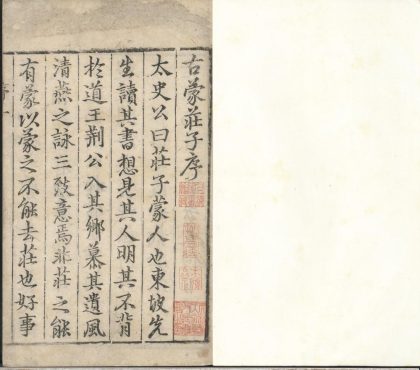 古蒙莊子序
太史公曰莊子蒙人也東坡先
生讀其書想見其人明其不背
於道王荊公入其鄉慕其遺風
清燕之詠三致意焉非莊之能
有蒙以蒙之不能去莊也好事
序